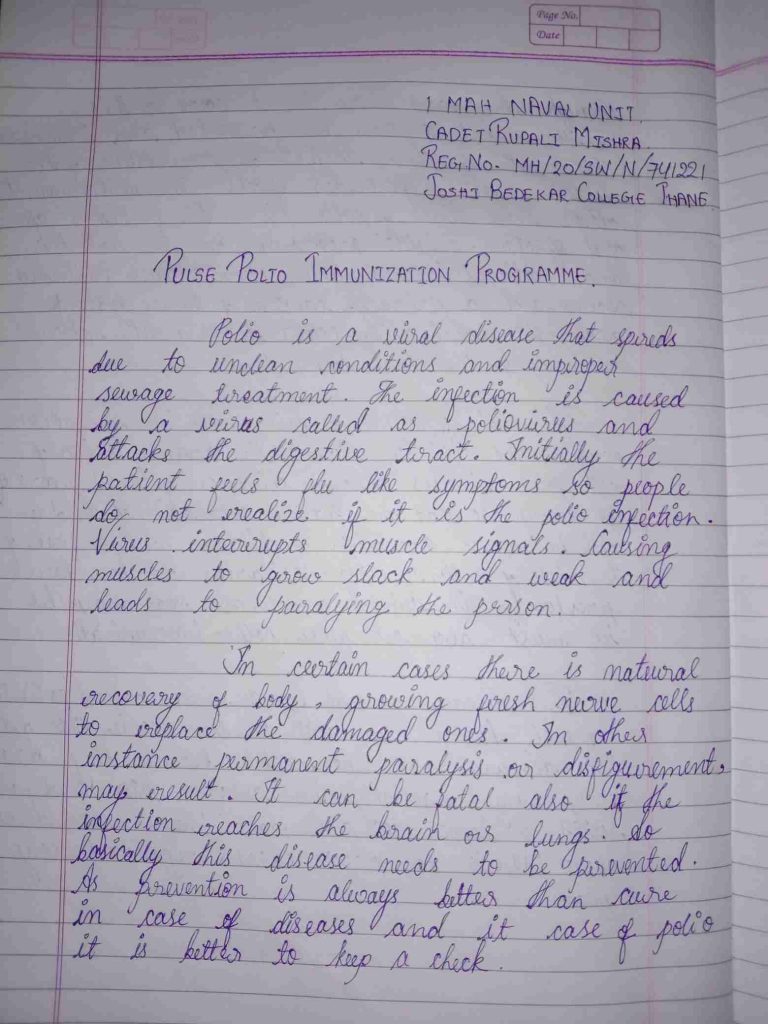 Page No.
Date
1 MAH NAVAL UNIT.
CADET RUPALI MISHRA.
REG.NO. MH/20/SW/N/741221
JOSHI BEDEKAR COLLEGE THANE.
PULSE POLIO IMMUNIZATION PROGRAMME.
Polio is a viral disease that spreds
due to unclean conditions and improper
sewage treatment. The infection is caused
by a virus called as poliovirus and
attacks the digestive tract. Initially the
patient feels flu like symptoms so people
do not realize if it is the polio infection.
Virus interrupts muscle signals. Causing
muscles to grow slack and weak and
leads to paralying the prson.
In certain cases there is natural
recovery of body, growing fresh nerve cells
to replace the damaged ones. In other
instance permanent paralysis or disfigurement,
may result. It can be fatal also if the
infection reaches the brain or lungs. So
basically this disease needs to be prevented.
As prevention is always better than cure
in case of diseases and it case of polio
it is better to keep a check.